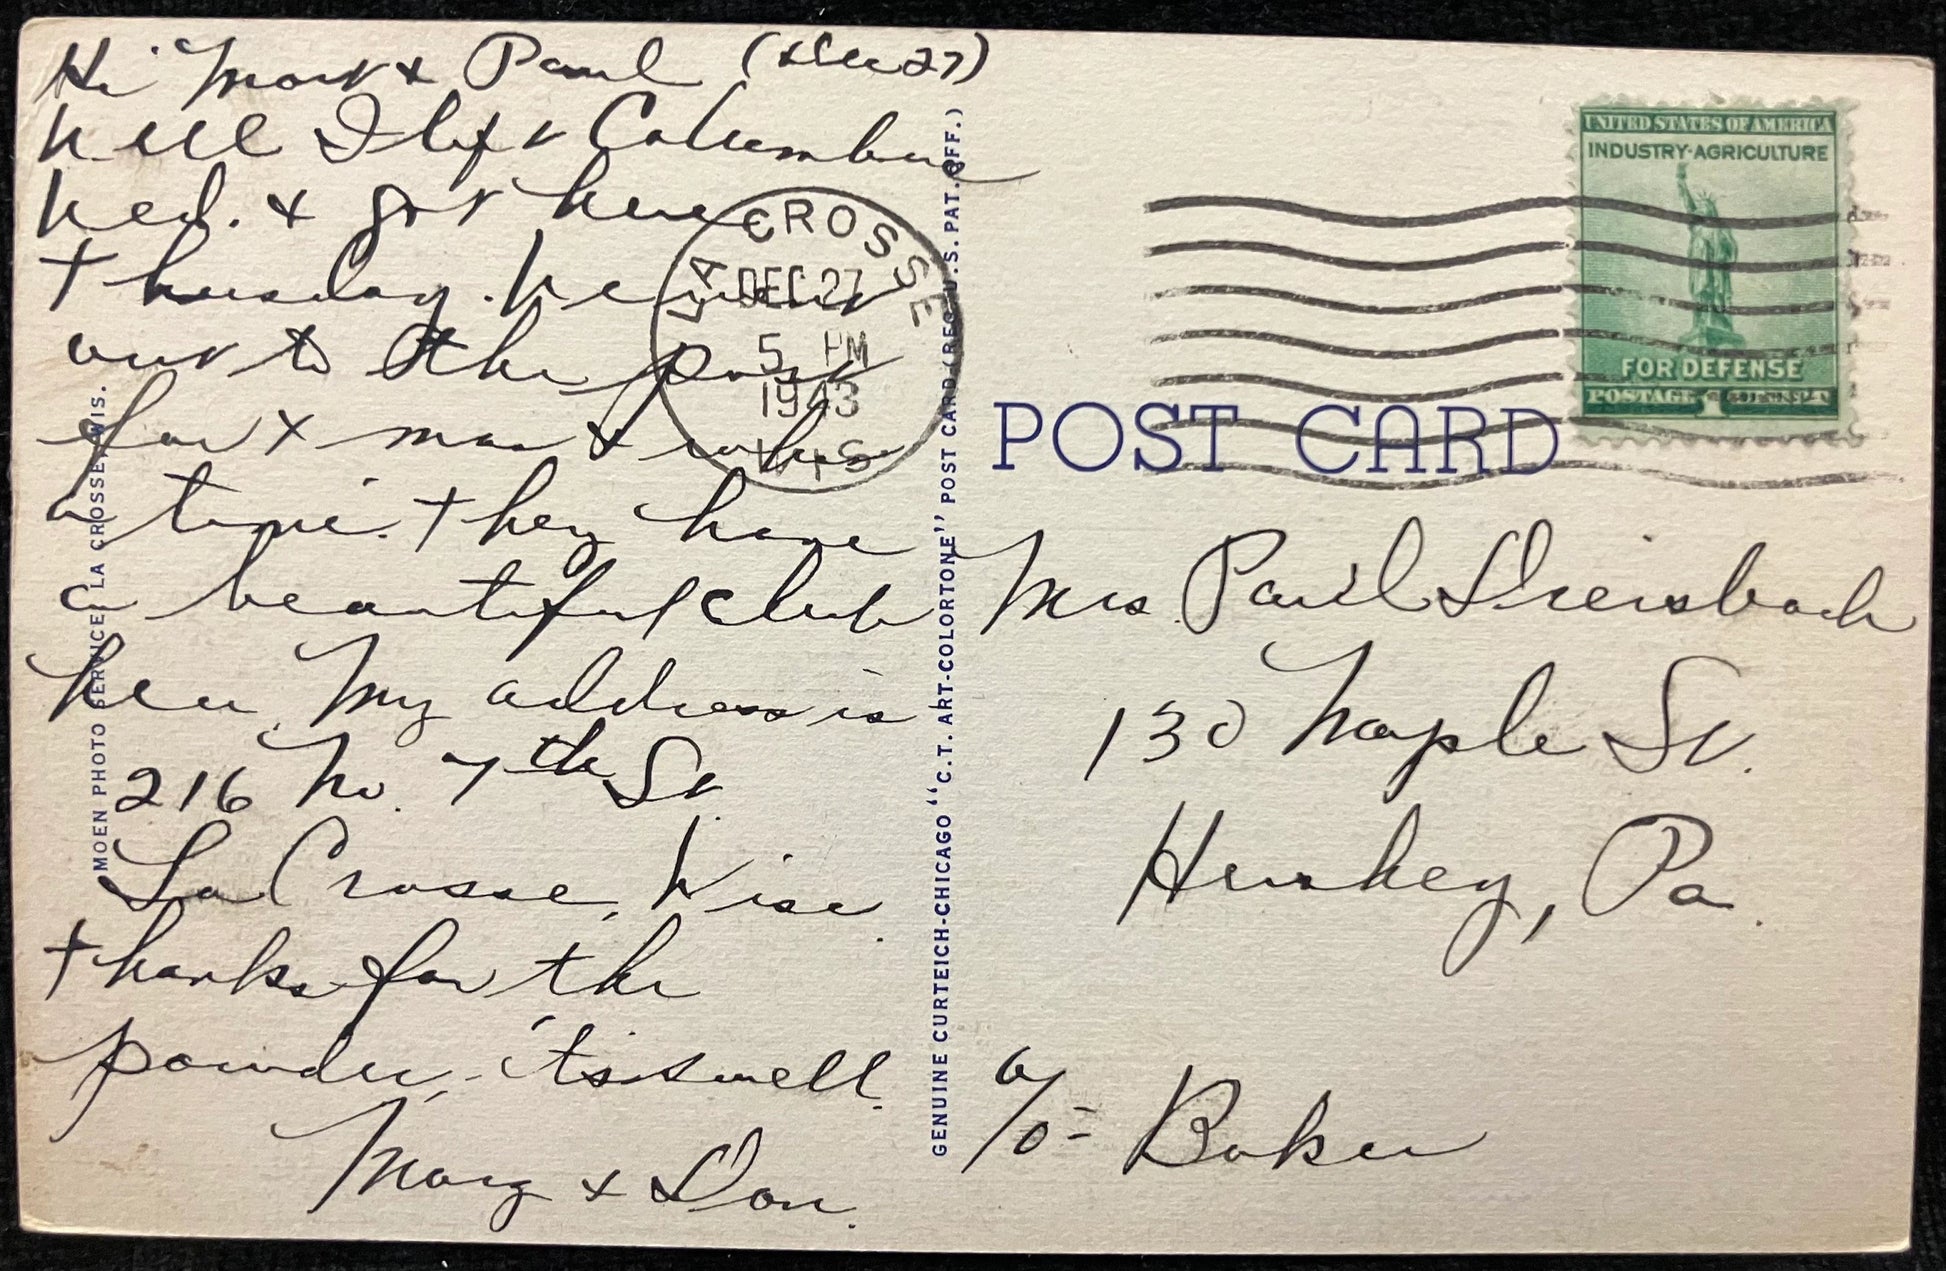 Hi Mart & Paul (Dec 27)
Well I left Columbus
Wed. & got here
Thursday. We went
out to the post
for Xmas & what
a time. They have
a beautiful club
here. My address is
216 No. 7th St.
La Crosse, Wisc.
Thanks for the
powder, - it's swell.
Marg & Don.
MOEN PHOTO SERVICE, LA CROSSE, WIS.
GENUINE CURTEICH-CHICAGO "C.T. ART-COLORTONE" POST CARD (REG. U.S. PAT. OFF.)
LA CROSSE
DEC 27
5 PM
1943
WIS
UNITED STATES OF AMERICA
INDUSTRY·AGRICULTURE
FOR DEFENSE
POSTAGE 1
POST CARD
Mrs. Paul Dreisbach
130 Maple St.
Hershey, Pa.
c/o - Baker